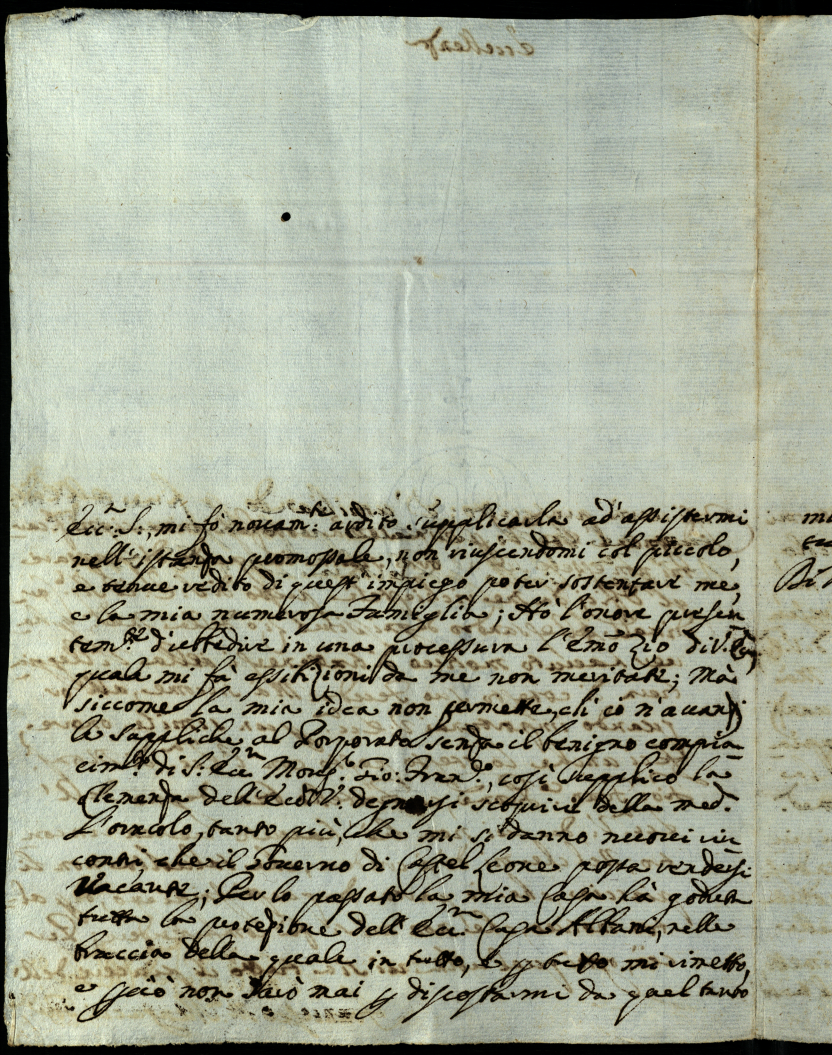 Ecc.ª S:, mi fò novam.te ardito supplicarla ad' assistermi
nell'istanza promossale, non riuscendomi col piccolo,
e tenue redito di quest'impiego poter sostentare me,
e la mia numerosa Famiglia; Hò l'onore presen
tem.te d'ubbedire in una processura l'Emo Zio di V.
quale mi fà esibizioni da me non meritate; Mà
siccome la mia idea non permette, ch'io n'avanzi
le suppliche al Porporato senza il benigno compia
cim.to di S. Ecc.ª Mons.r Gio: Fran.co, così supplico la
Clemenza dell'Ecc. V. degnarsi scoprire della med.ª
l'oracolo, tanto più, che mi si danno nuovi rin
contri che il Governo di Castel Leone possa rendersi
Vacante; Per lo passato la mia Casa hà goduta
tutta la protezione dell'Ecc.ma Casa Albani, nelle
braccia della quale in tutto, e p tutto mi rimetto,
e però non sarò mai p discostarmi da quel tanto